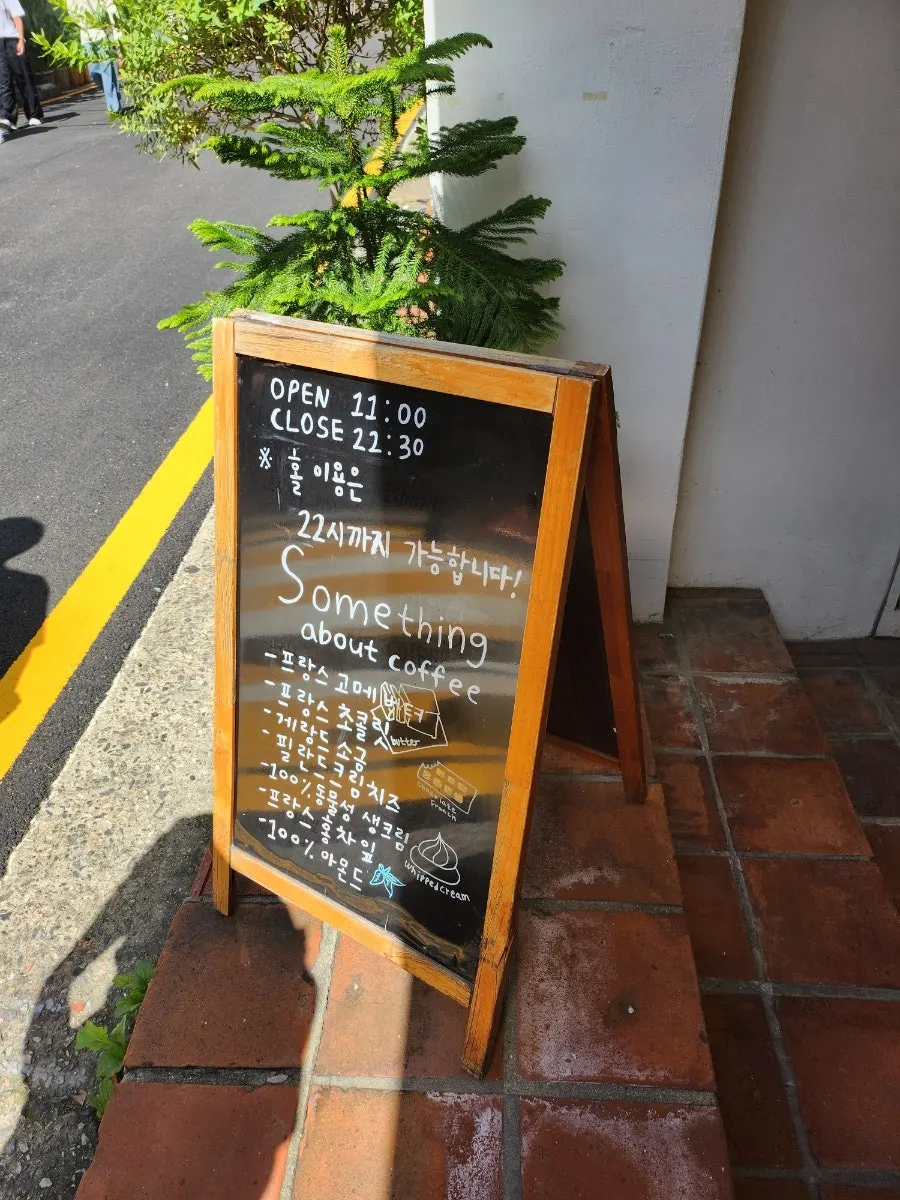 OPEN 11:00
CLOSE 22:30
※ 홀 이용은
22시까지 가능합니다!
Something
about coffee
- 프랑스 고메버터
- 프랑스 초콜릿
- 게랑드 소금
- 필란드크림치즈
- 100% 동물성 생크림
- 프랑스 홍차 잎
- 100% 아몬드
butter
Chocolate
French
whippedcream